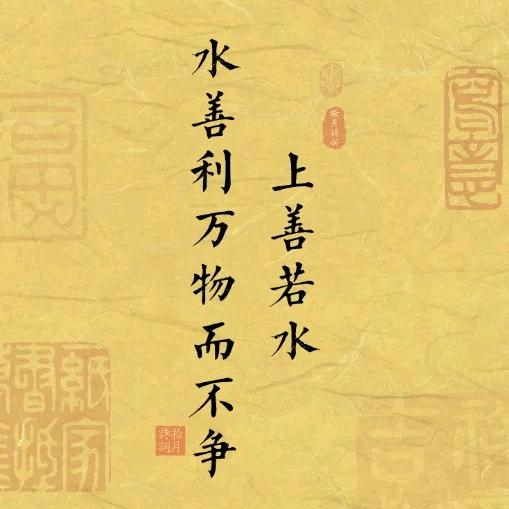 上善若水
水善利万物而不争
拾月诗词
拾月
詩詞